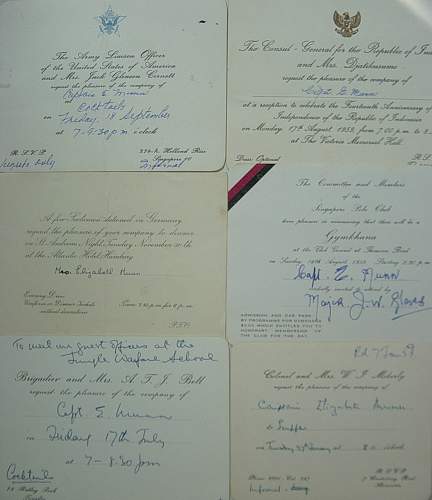 The Army Liaison Officer
of the United States of America
and Mrs. Jack Gleason Cornett
request the pleasure of the company of
Captain E. Munn
at
Cocktails
on Friday, 18 September
at 7-8.30 p.m. o'clock
R.S.V.P.
Holland Rise
Singapore
Informal
The Consul-General for the Republic of In
and Mrs. Djatikusumo
request the pleasure of the company of
Capt. E. Munn
at a reception to celebrate the Fourteenth Anniversary of
Independence of the Republic of Indonesia
on Monday, 17th August 1959, from 7.00 p.m. to
at The Victoria Memorial Hall.
Dress: Optional
A few Scotsmen detained in Germany
request the pleasure of your company to dinner
on St. Andrew's Night, Tuesday, November 30th
at the Atlantic Hotel, Hamburg
Miss Elizabeth Munn
Evening Dress
Uniform or Dinner Jackets
without decorations
The Committee and Members
of the
Singapore Polo Club
have pleasure in announcing that there will be a
Gymkhana
at the Club Ground at Thomson Road
on Sunday, 16th August 1959
Capt. E. Munn
cordially invited to attend by
Major J.W.
ADMISSION AND CAR PARK
BY PROGRAMME
To meet our guest officers at the
Jungle Warfare School
Brigadier and Mrs. A. T. J. Bell
request the pleasure of the company of
Capt. E. Munn
on Friday 17th July
at 7-8.30 pm
Cocktails
Colonel and Mrs. W. S.
request the pleasure of the company of
Captain Elizabeth Munn
to Supper
on
at 8 o'clock
R.S.V.P.
Informal